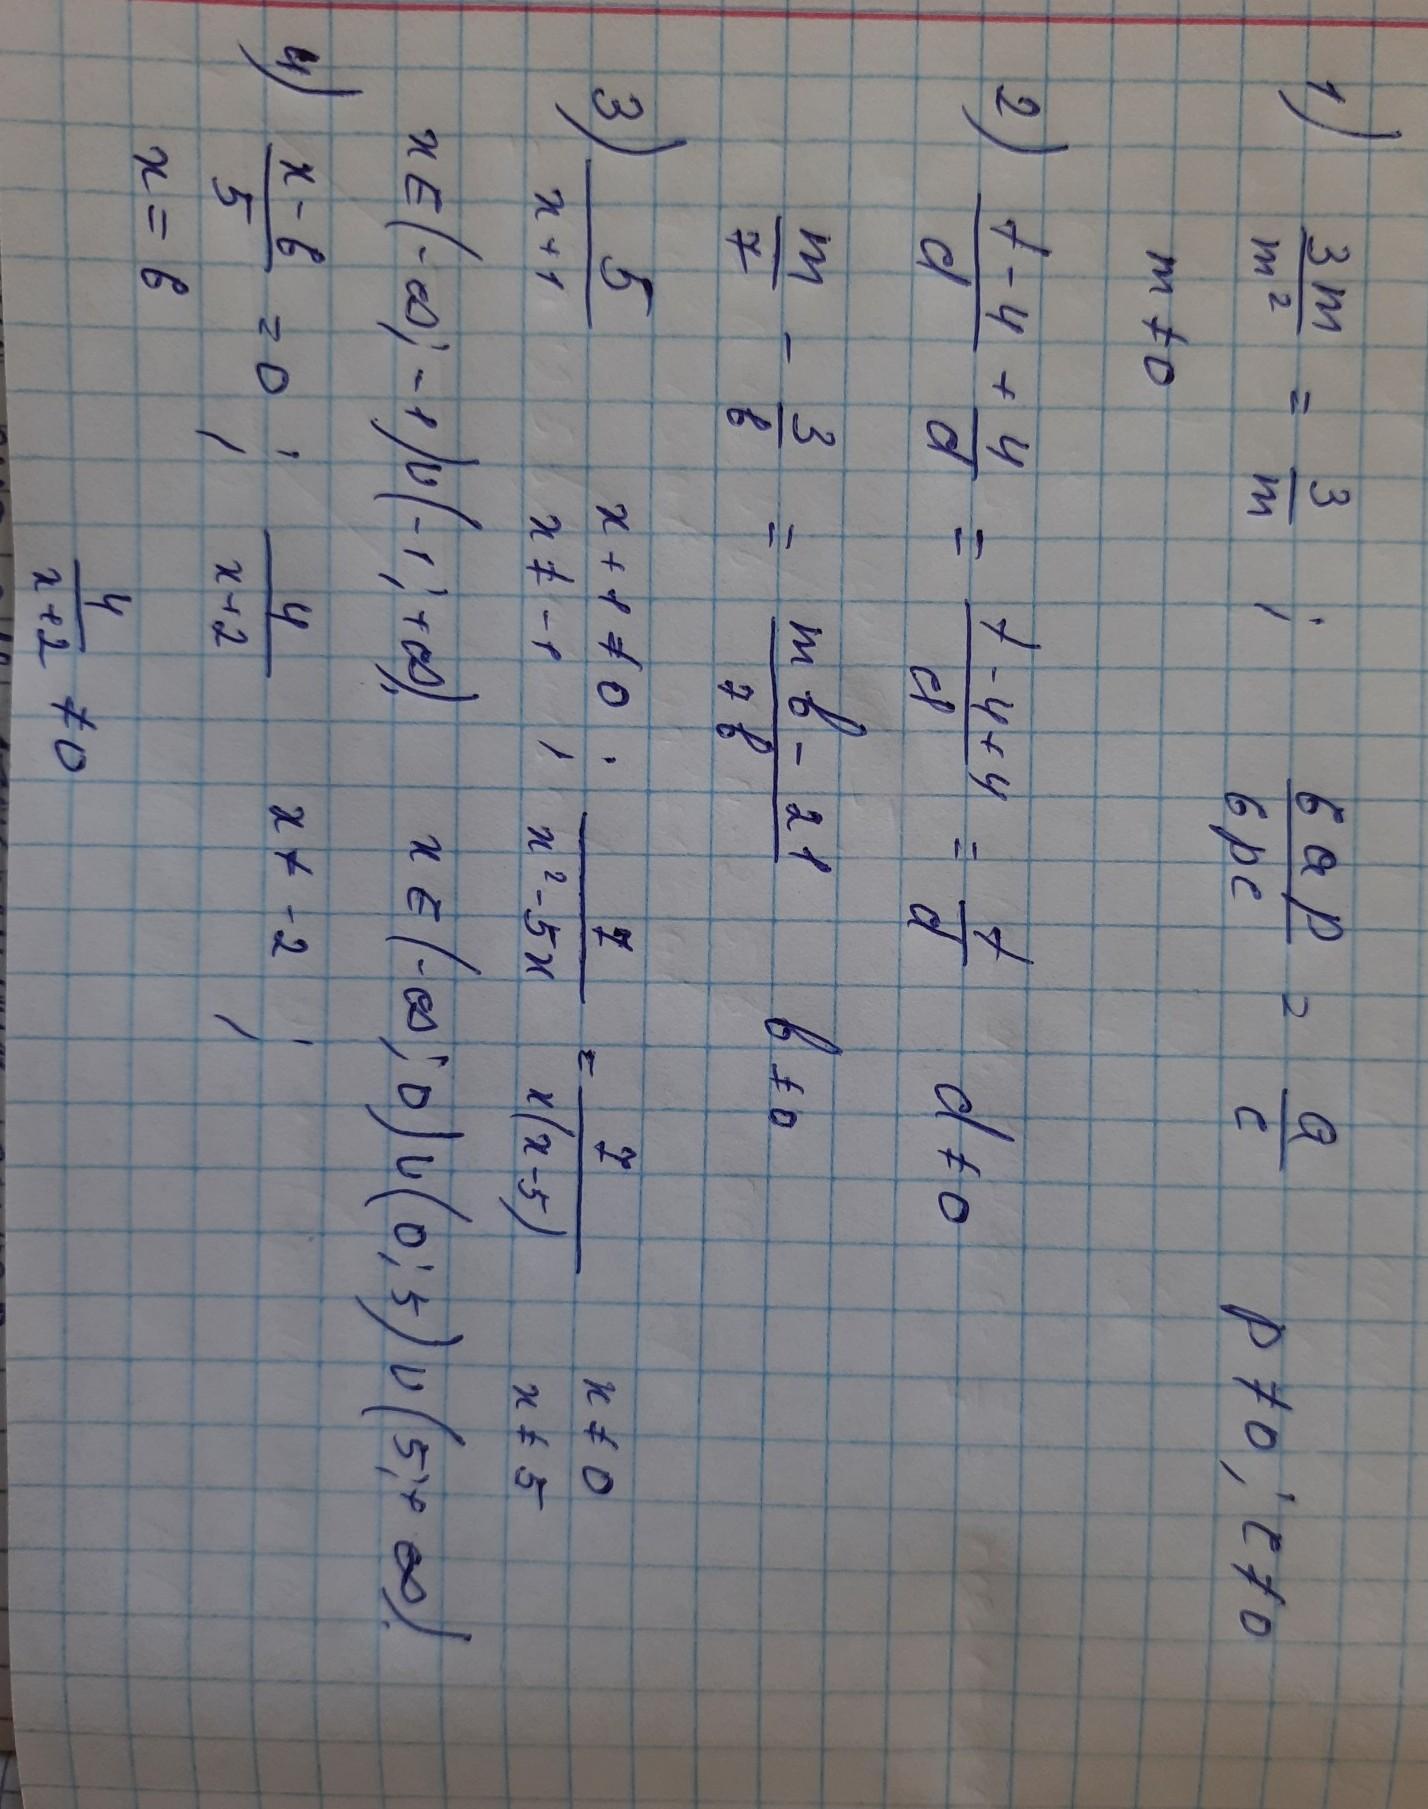 1) 3m/m² = 3/m ; 6ap/6pc = a/c p ≠ 0; c ≠ 0
m ≠ 0
2) (t-4)/d + 4/d = (t-4+4)/d = t/d d ≠ 0
m/7 - 3/b = (mb-21)/7b b ≠ 0
3) 5/(x+1) x+1 ≠ 0 x ≠ -1 ; 7/(x²-5x) = 7/(x(x-5)) x ≠ 0 x ≠ 5
x ∈ (-∞; -1) ∪ (-1; +∞) x ∈ (-∞; 0) ∪ (0; 5) ∪ (5; +∞)
4) (x-6)/5 = 0 ; 4/(x+2) x ≠ -2 ;
x = 6
4/(x+2) ≠ 0